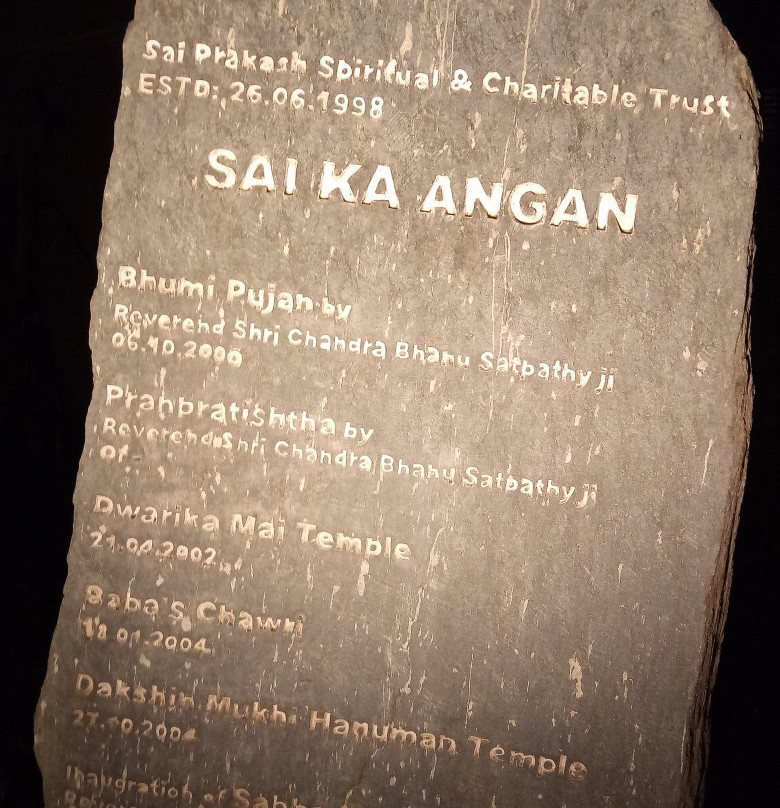 Sai Prakash Spiritual & Charitable Trust
ESTD: 26.06.1998
SAI KA ANGAN
Bhumi Pujan by
Reverend Shri Chandra Bhanu Satpathy ji
06.10.2000
Pranpratishtha by
Reverend Shri Chandra Bhanu Satpathy ji
of
Dwarika Mai Temple
21.04.2002
Baba's Chawri
18.01.2004
Dakshin Mukhi Hanuman Temple
27.10.2004
Inaugration of